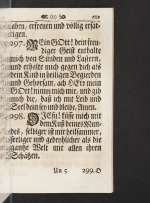 Leben, erfreuen und völlig ersät-
tigen.
297. Mein GOtt! dein freu-
diger Geist enthalte
mich von Sünden und Lastern,
und erhalte mich gegen dich als
dein Kind in heiligen Begierden
und Gehorsam, ach HErr mein
GOtt! nimm mich mir, und gib
mich dir, daß ich mit Leib und
Seel dein sey und bleibe, Amen.
298. O JEsu! küsse mich mit
dem Kuß deines Mun-
des, selbiger ist mir heilsamer,
köstlicher und gedeyhlicher als die
gantze Welt mit allen ihren
Schätzen.
Uu 5 299. O